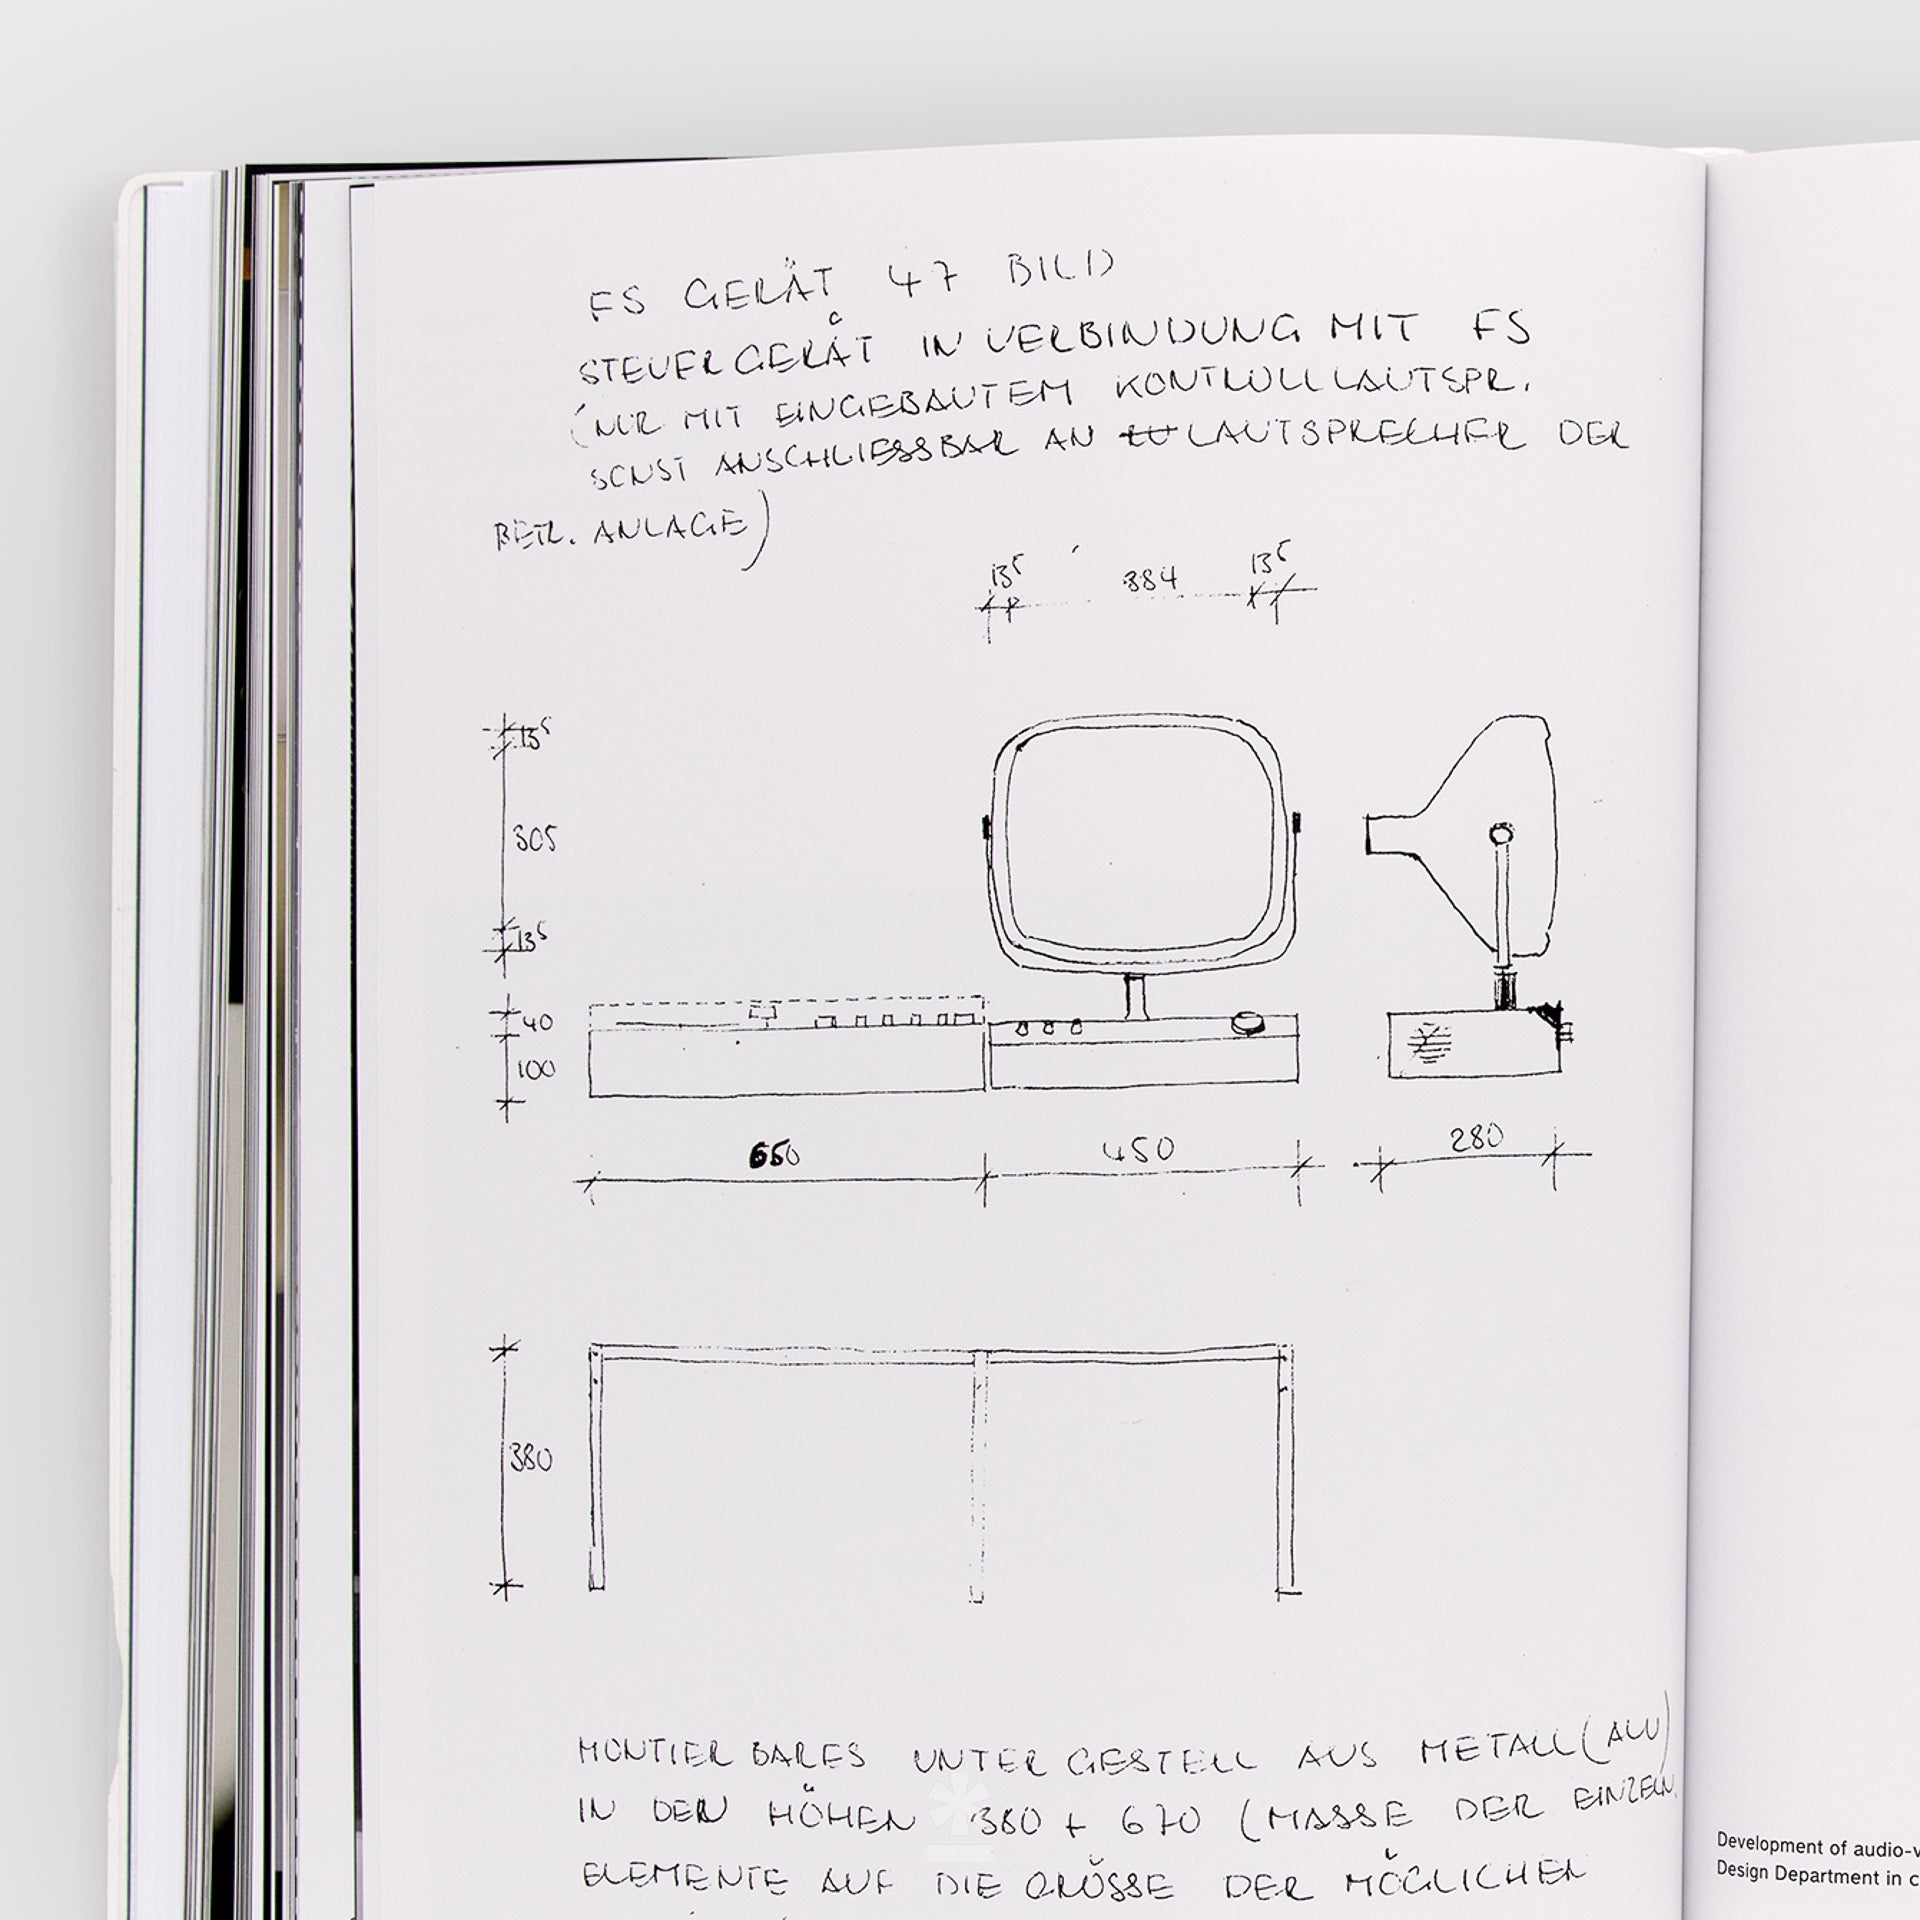 FS GERÄT 47 BILD
STEUERGERÄT IN VERBINDUNG MIT FS
(NUR MIT EINGEBAUTEM KONTROLLLAUTSPR.
SONST ANSCHLIESSBAR AN LAUTSPRECHER DER
BETR. ANLAGE)
13⁵ 384 13⁵
13⁵
305
13⁵
40
100
650 450 280
380
MONTIERBARES UNTERGESTELL AUS METALL (ALU)
IN DEN HÖHEN 380 + 670 (MASSE DER EINZELN.
ELEMENTE AUF DIE GRÖSSE DER MÖGLICHEN
Development of audio-v
Design Department in c